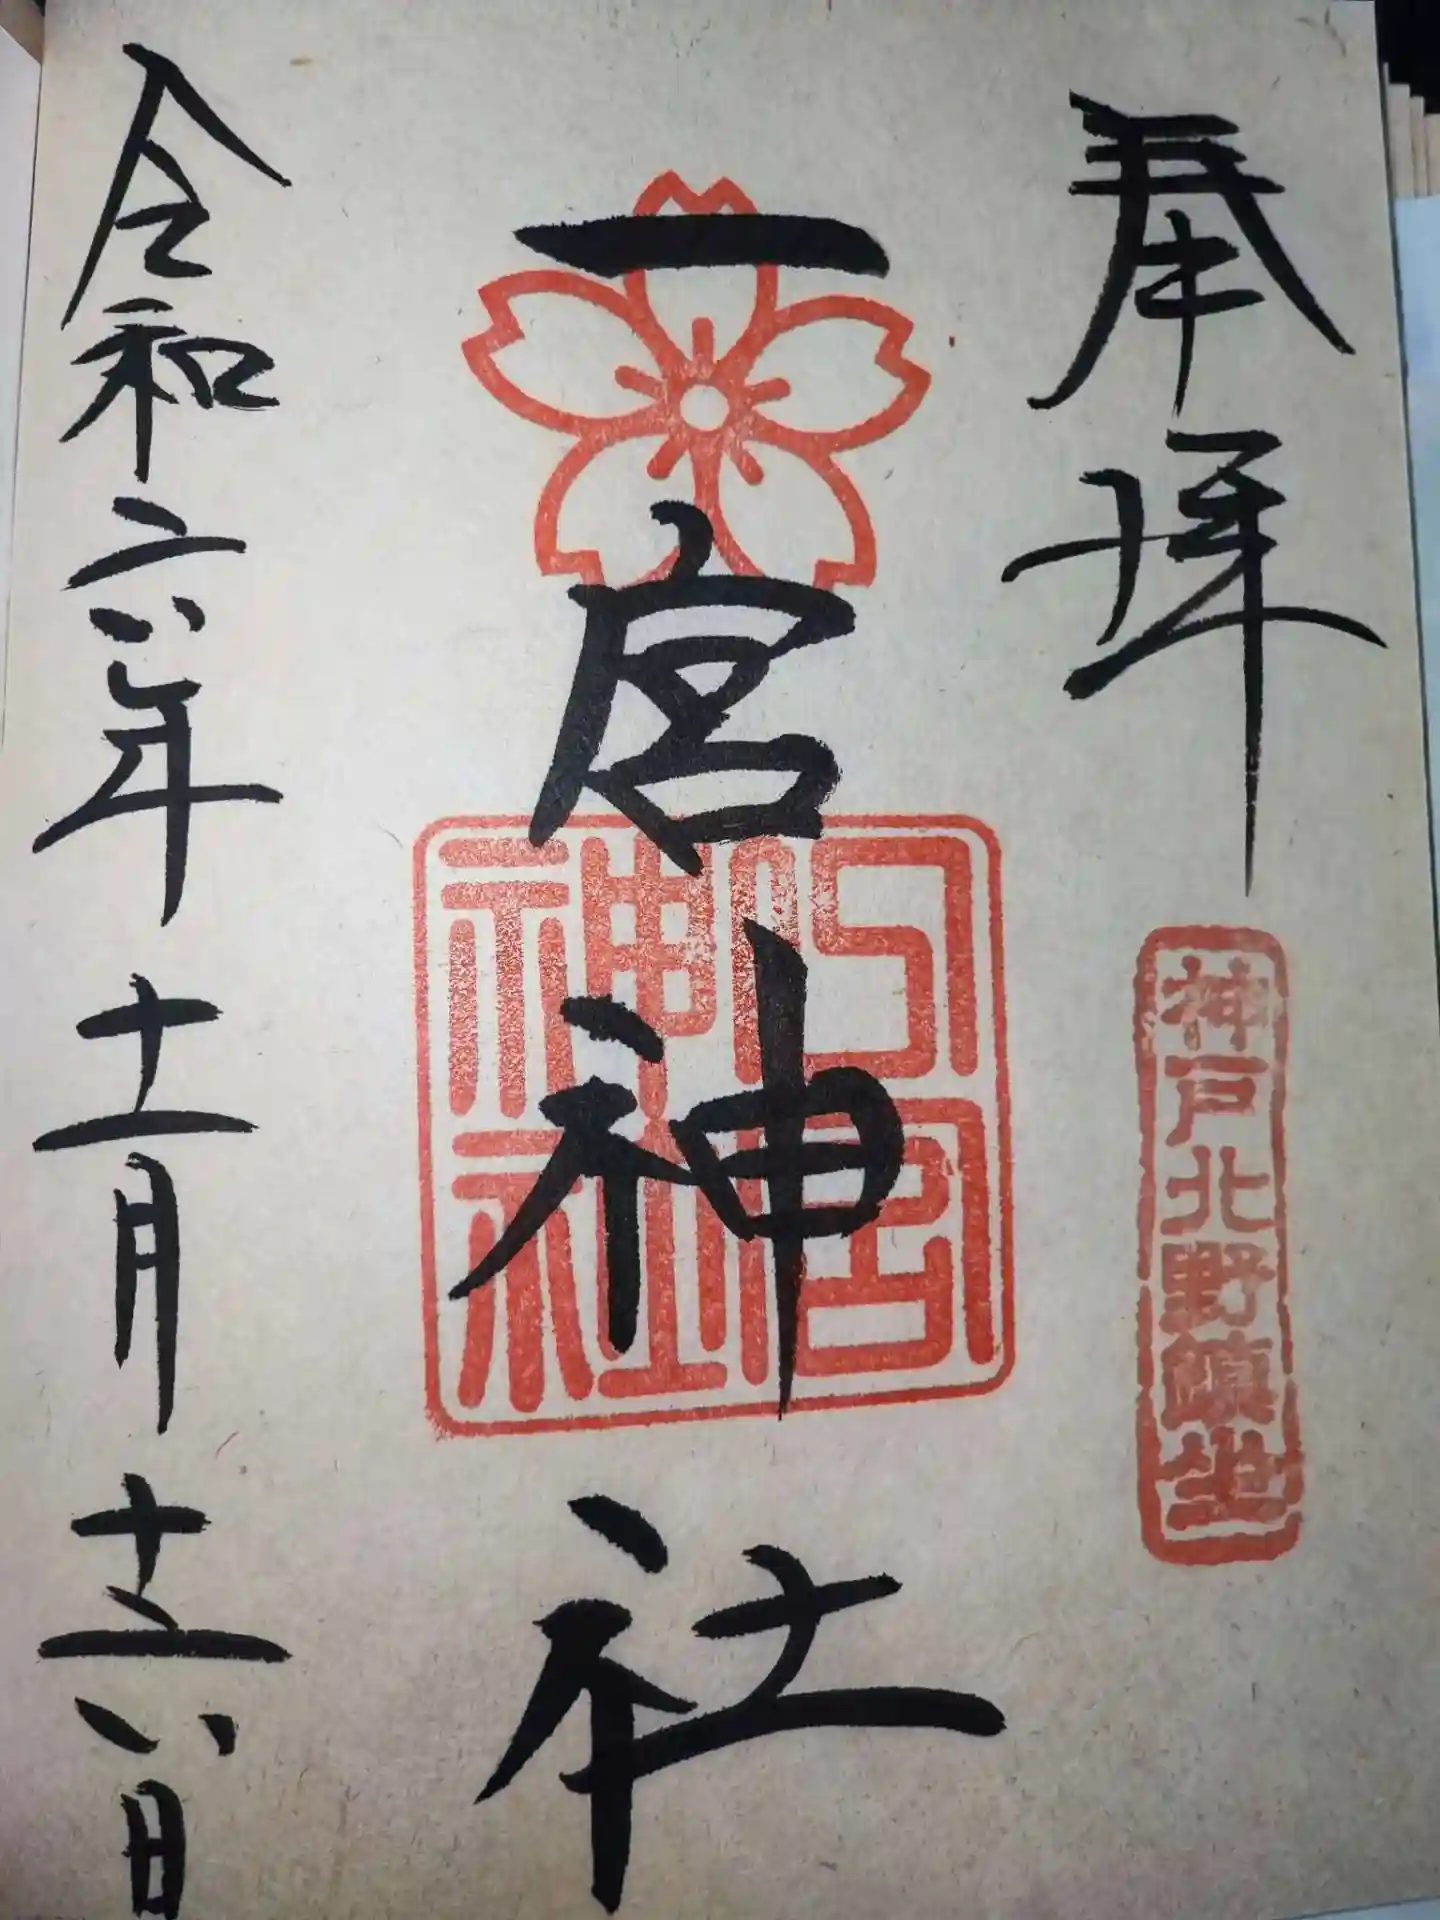 奉拝
神戸北野鎮坐
一宮神社
宮
神社
令和六年十一月十六日